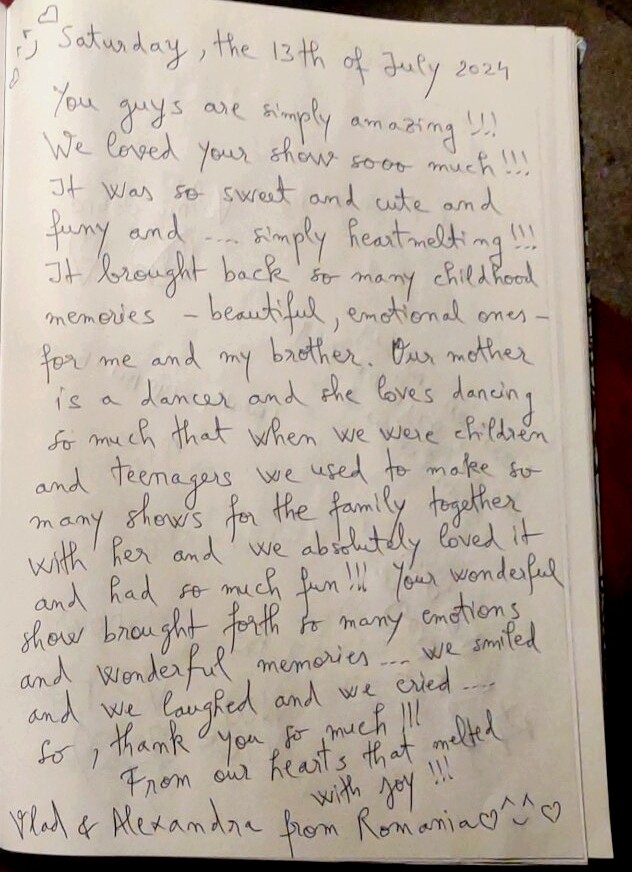 Saturday, the 13th of July 2024
You guys are simply amazing!!!
We loved your show sooo much!!!
It was so sweet and cute and
funy and .... simply heartmelting!!!
It brought back so many childhood
memories - beautiful, emotional ones -
for me and my brother. Our mother
is a dancer and she loves dancing
so much that when we were children
and teenagers we used to make so
many shows for the family together
with her and we absolutely loved it
and had so much fun!!! Your wonderful
show brought forth so many emotions
and wonderful memories .... we smiled
and we laughed and we cried ....
So, thank you so much!!!
From our hearts that melted
with joy!!!
Vlad & Alexandra from Romania♡^‿^♡